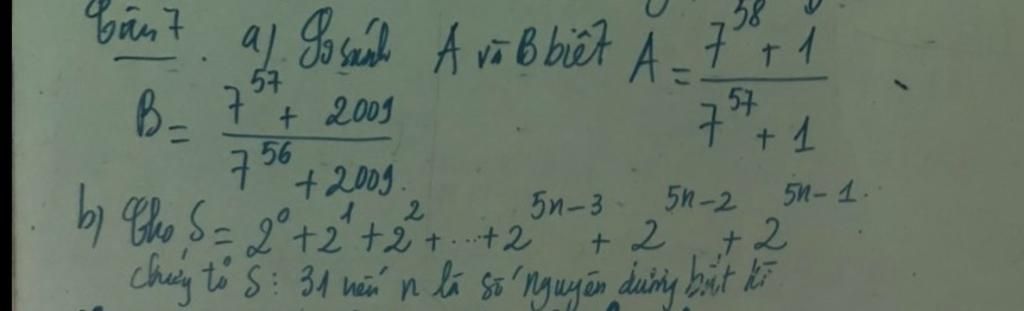 Bài 7. a) So sánh A và B biết A = \frac{7^{58} + 1}{7^{57} + 1}
B = \frac{7^{57} + 2009}{7^{56} + 2009}.
b) Cho S = 2^0 + 2^1 + 2^2 + ... + 2^{5n-3} + 2^{5n-2} + 2^{5n-1}.
chứng tỏ S : 31 nếu n là số nguyên dương bất kì